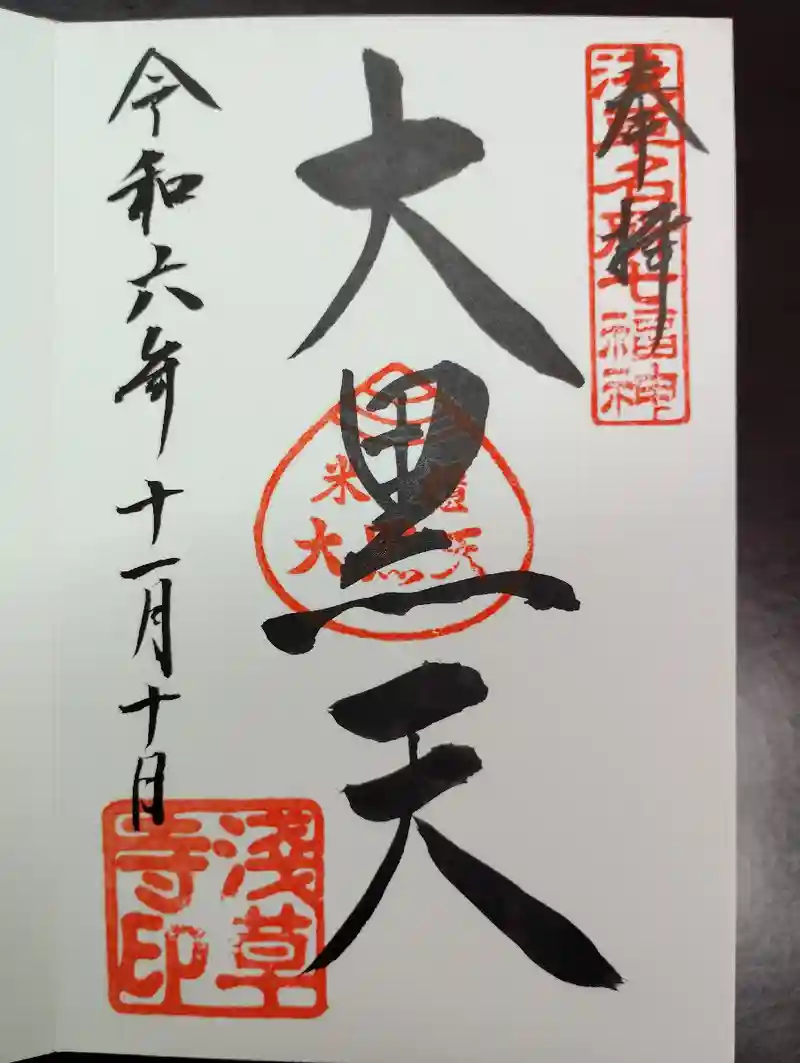 奉拝
浅草名所七福神
大黒天
米櫃
大黒天
令和六年十一月十日
淺草
寺印